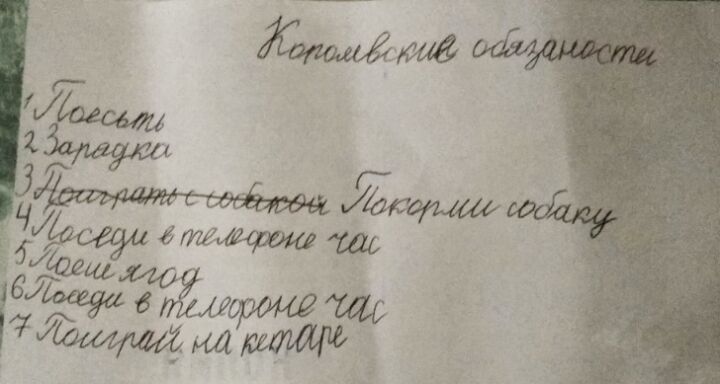 Королвские обязаности
1 Поесьть
2 Зарадка
3 Поиграть с собакой Покорми собаку
4 Поседи в телефоне час
5 Поеш ягод
6 Поседи в телефоне час
7 Поиграй на кетаре